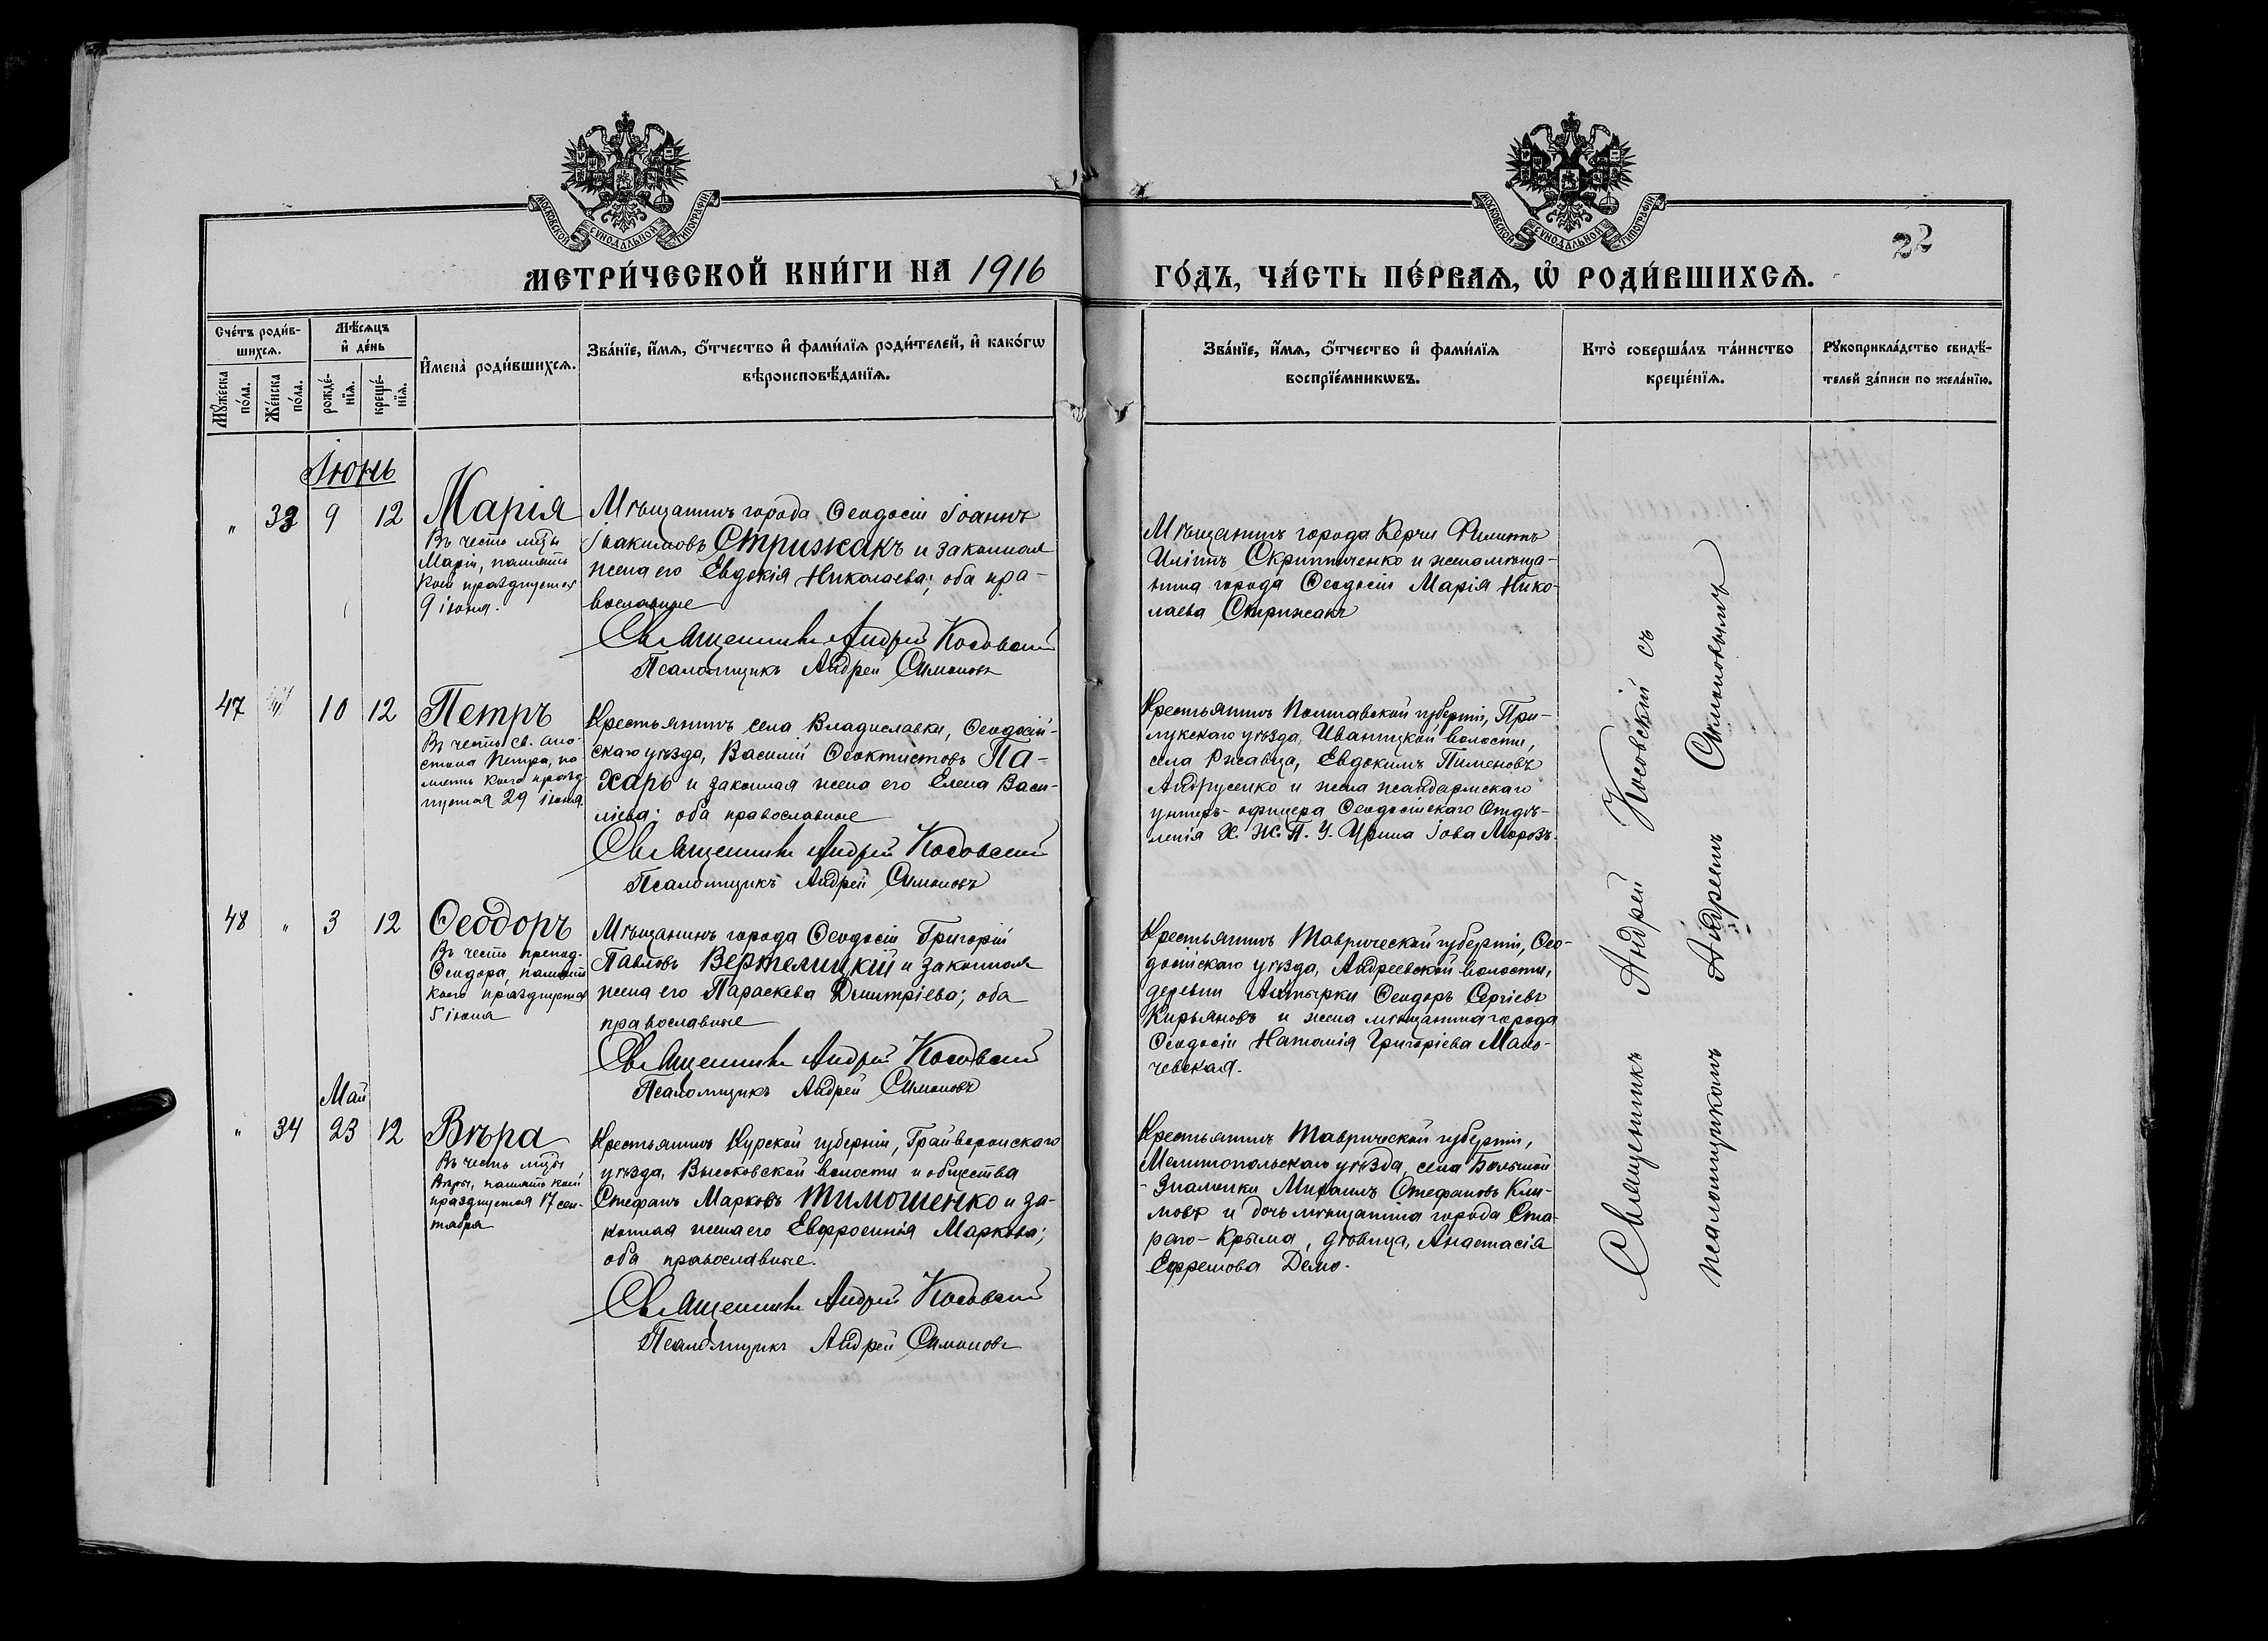 МОСКОВСКОЙ СѴНОДАЛЬНОЙ ТИПОГРАФІИ
МОСКОВСКОЙ СѴНОДАЛЬНОЙ ТИПОГРАФІИ
22
МЕТРИ́ЧЕСКОЙ КНИ́ГИ НА 1916
ГО́ДЪ, ЧА́СТЬ ПЕ́РВАѦ, Ѡ РОДИ́ВШИХСѦ.
Сче́тъ роди́в-
шихсѧ.
Мꙋ́жеска
по́ла.
Же́нска
по́ла.
Мѣ́сѧцъ
и҆ де́нь
рожде́-
нїѧ.
креще́-
нїѧ.
И҆мена̀ роди́вшихсѧ.
Зва́нїе, и҆́мѧ, ѻ҆́тчество и҆ фами́лїѧ роди́телей, и҆ како́гѡ
вѣроисповѣ́данїѧ.
Зва́нїе, и҆́мѧ, ѻ҆́тчество и҆ фами́лїѧ
воспрїе́мникѡвъ.
Кто̀ соверша́лъ та́инство
креще́нїѧ.
Рꙋкоприкла́дство свидѣ́-
телей за́писи по жела́нїю.
Іюнь
" 33 9 12
Марія
Въ честь мцы
Маріи, память
коей празднуется
9 іюня.
Мѣщанинъ города Ѳеодосіи Іоаннъ
Іоакимовъ Стрижакъ и законная
жена его Евдокія Николаева; оба пра-
вославные
Священникъ Андрей Косовскій
Псаломщикъ Андрей Симоновъ
Мѣщанинъ города Керчи Филиппъ
Скрипниченко и жена мѣща-
нина города Ѳеодосіи Марія Нико-
лаева Стрижакъ
47 10 12
Петръ
Въ честь св. апо-
стола Петра, па
мять коего празд
нуется 29 іюня
Крестьянинъ села Владиславки, Ѳеодосій-
скаго уѣзда, Василій Ѳеоктистовъ Па-
харь и законная жена его Елена Васи-
ліева; оба православные
Священникъ Андрей Косовскій
Псаломщикъ Андрей Симоновъ
Крестьянинъ Полтавской губерніи, При-
лукскаго уѣзда, Иваницкой волости,
села Ржавца, Евдокимъ Пименовъ
Андрусенко и жена жандармскаго
унтеръ-офицера Ѳеодосійскаго Отдѣ-
ленія К. Ж. П. У. Ирина Іова Морозъ.
48 " 3 12
Ѳеодоръ
Въ честь препод.
Ѳеодора, память
коего празднуется
5 іюня
Мѣщанинъ города Ѳеодосіи Григорій
Павловъ Вертелицкій и законная
жена его Параскева Димитріева; оба
православные
Священникъ Андрей Косовскій
Псаломщикъ Андрей Симоновъ
Крестьянинъ Таврической губерніи, Ѳео-
досійскаго уѣзда, Андреевской волости,
деревни Ѳеодоръ Сергіевъ
Кирьяновъ и жена мѣщанина города
Ѳеодосіи Наталія Григоріева
чевская.
Май
" 34 23 12
Вѣра
Въ честь мцы
Вѣры, память коей
празднуется 17 сен-
тября
Крестьянинъ Курской губерніи, Грайворонскаго
уѣзда, Высоковской волости и общества
Стефанъ Марковъ Тимошенко и за-
конная жена его Евфросинія Маркова;
оба православные.
Священникъ Андрей Косовскій
Псаломщикъ Андрей Симоновъ
Крестьянинъ Таврической губерніи,
Мелитопольскаго уѣзда, села Большой
- Знаменки Михаилъ Стефановъ Кли-
мовъ и дочь мѣщанина города Ста-
раго-Крыма, дѣвица, Анастасія
Ефремова Демо.
Священникъ Андрей Косовскій съ
псаломщикомъ Андреемъ Симоновымъ